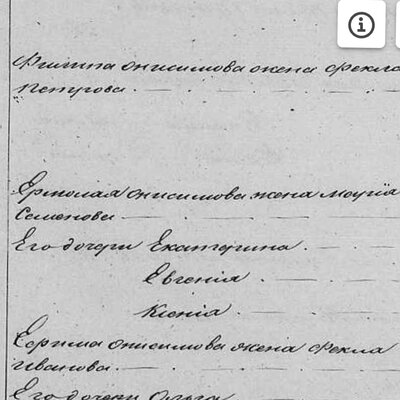 Филипа Онисимова жена Фекла
Петрова
Ермолая Онисимова жена Марія
Семенова
Его дочери Екатерина
Евгенія
Ксенія
Ефима Онисимова жена Фекла
Иванова
Его дочери Ольга